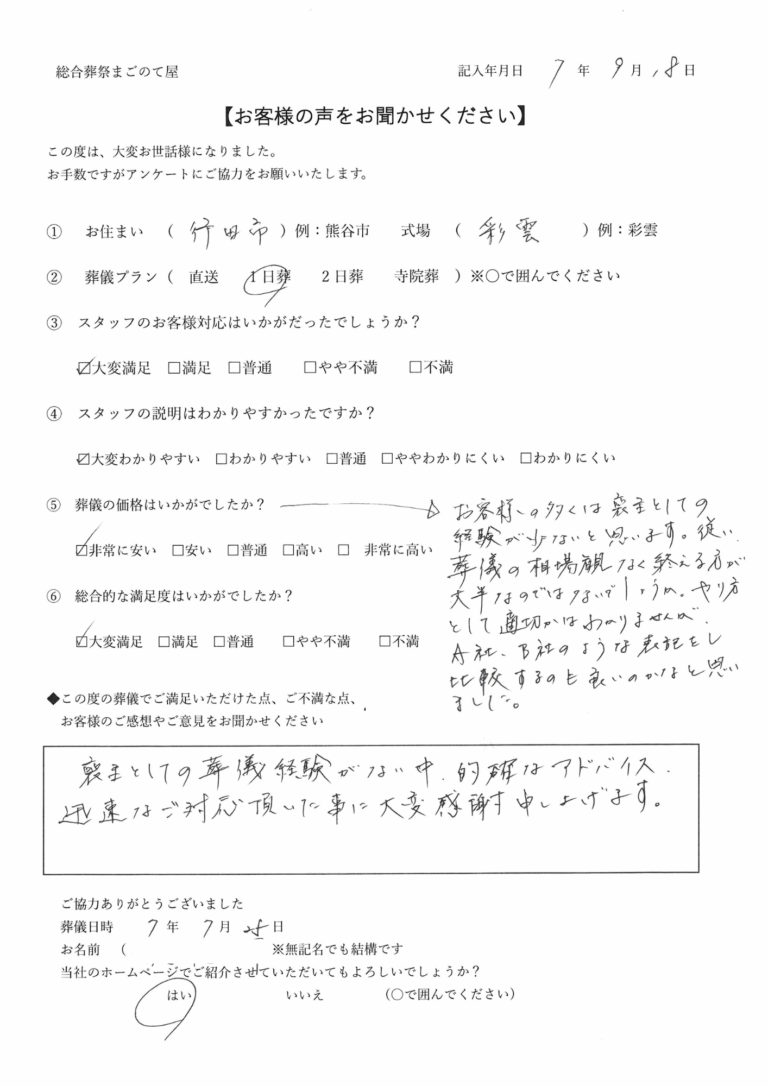 総合葬祭まごのて屋 記入年月日 7年 9月 18日
【お客様の声をお聞かせください】
この度は、大変お世話様になりました。
お手数ですがアンケートにご協力をお願いいたします。
① お住まい （ 行田市 ）例：熊谷市 式場 （ 彩雲 ）例：彩雲
② 葬儀プラン（ 直送 1日葬 2日葬 寺院葬 ）※〇で囲んでください
③ スタッフのお客様対応はいかがだったでしょうか？
☑大変満足 □満足 □普通 □やや不満 □不満
④ スタッフの説明はわかりやすかったですか？
☑大変わかりやすい □わかりやすい □普通 □ややわかりにくい □わかりにくい
⑤ 葬儀の価格はいかがでしたか？
☑非常に安い □安い □普通 □高い □ 非常に高い
お客様の多くは喪主としての
経験が少ないと思います。従い、
葬儀の相場観なく終える方が
大半なのではないでしょうか。やり方
として適切かはわかりませんが、
A社、B社のような表記をし
比較するのも良いのかなと思い
ました。
⑥ 総合的な満足度はいかがでしたか？
☑大変満足 □満足 □普通 □やや不満 □不満
◆この度の葬儀でご満足いただけた点、ご不満な点、
お客様のご感想やご意見をお聞かせください
喪主としての葬儀経験がない中、的確なアドバイス、
迅速なご対応頂いた事に大変感謝申し上げます。
ご協力ありがとうございました
葬儀日時 7年 7月 日
お名前 （ ※無記名でも結構です
当社のホームページでご紹介させていただいてもよろしいでしょうか？
はい いいえ （〇で囲んでください）